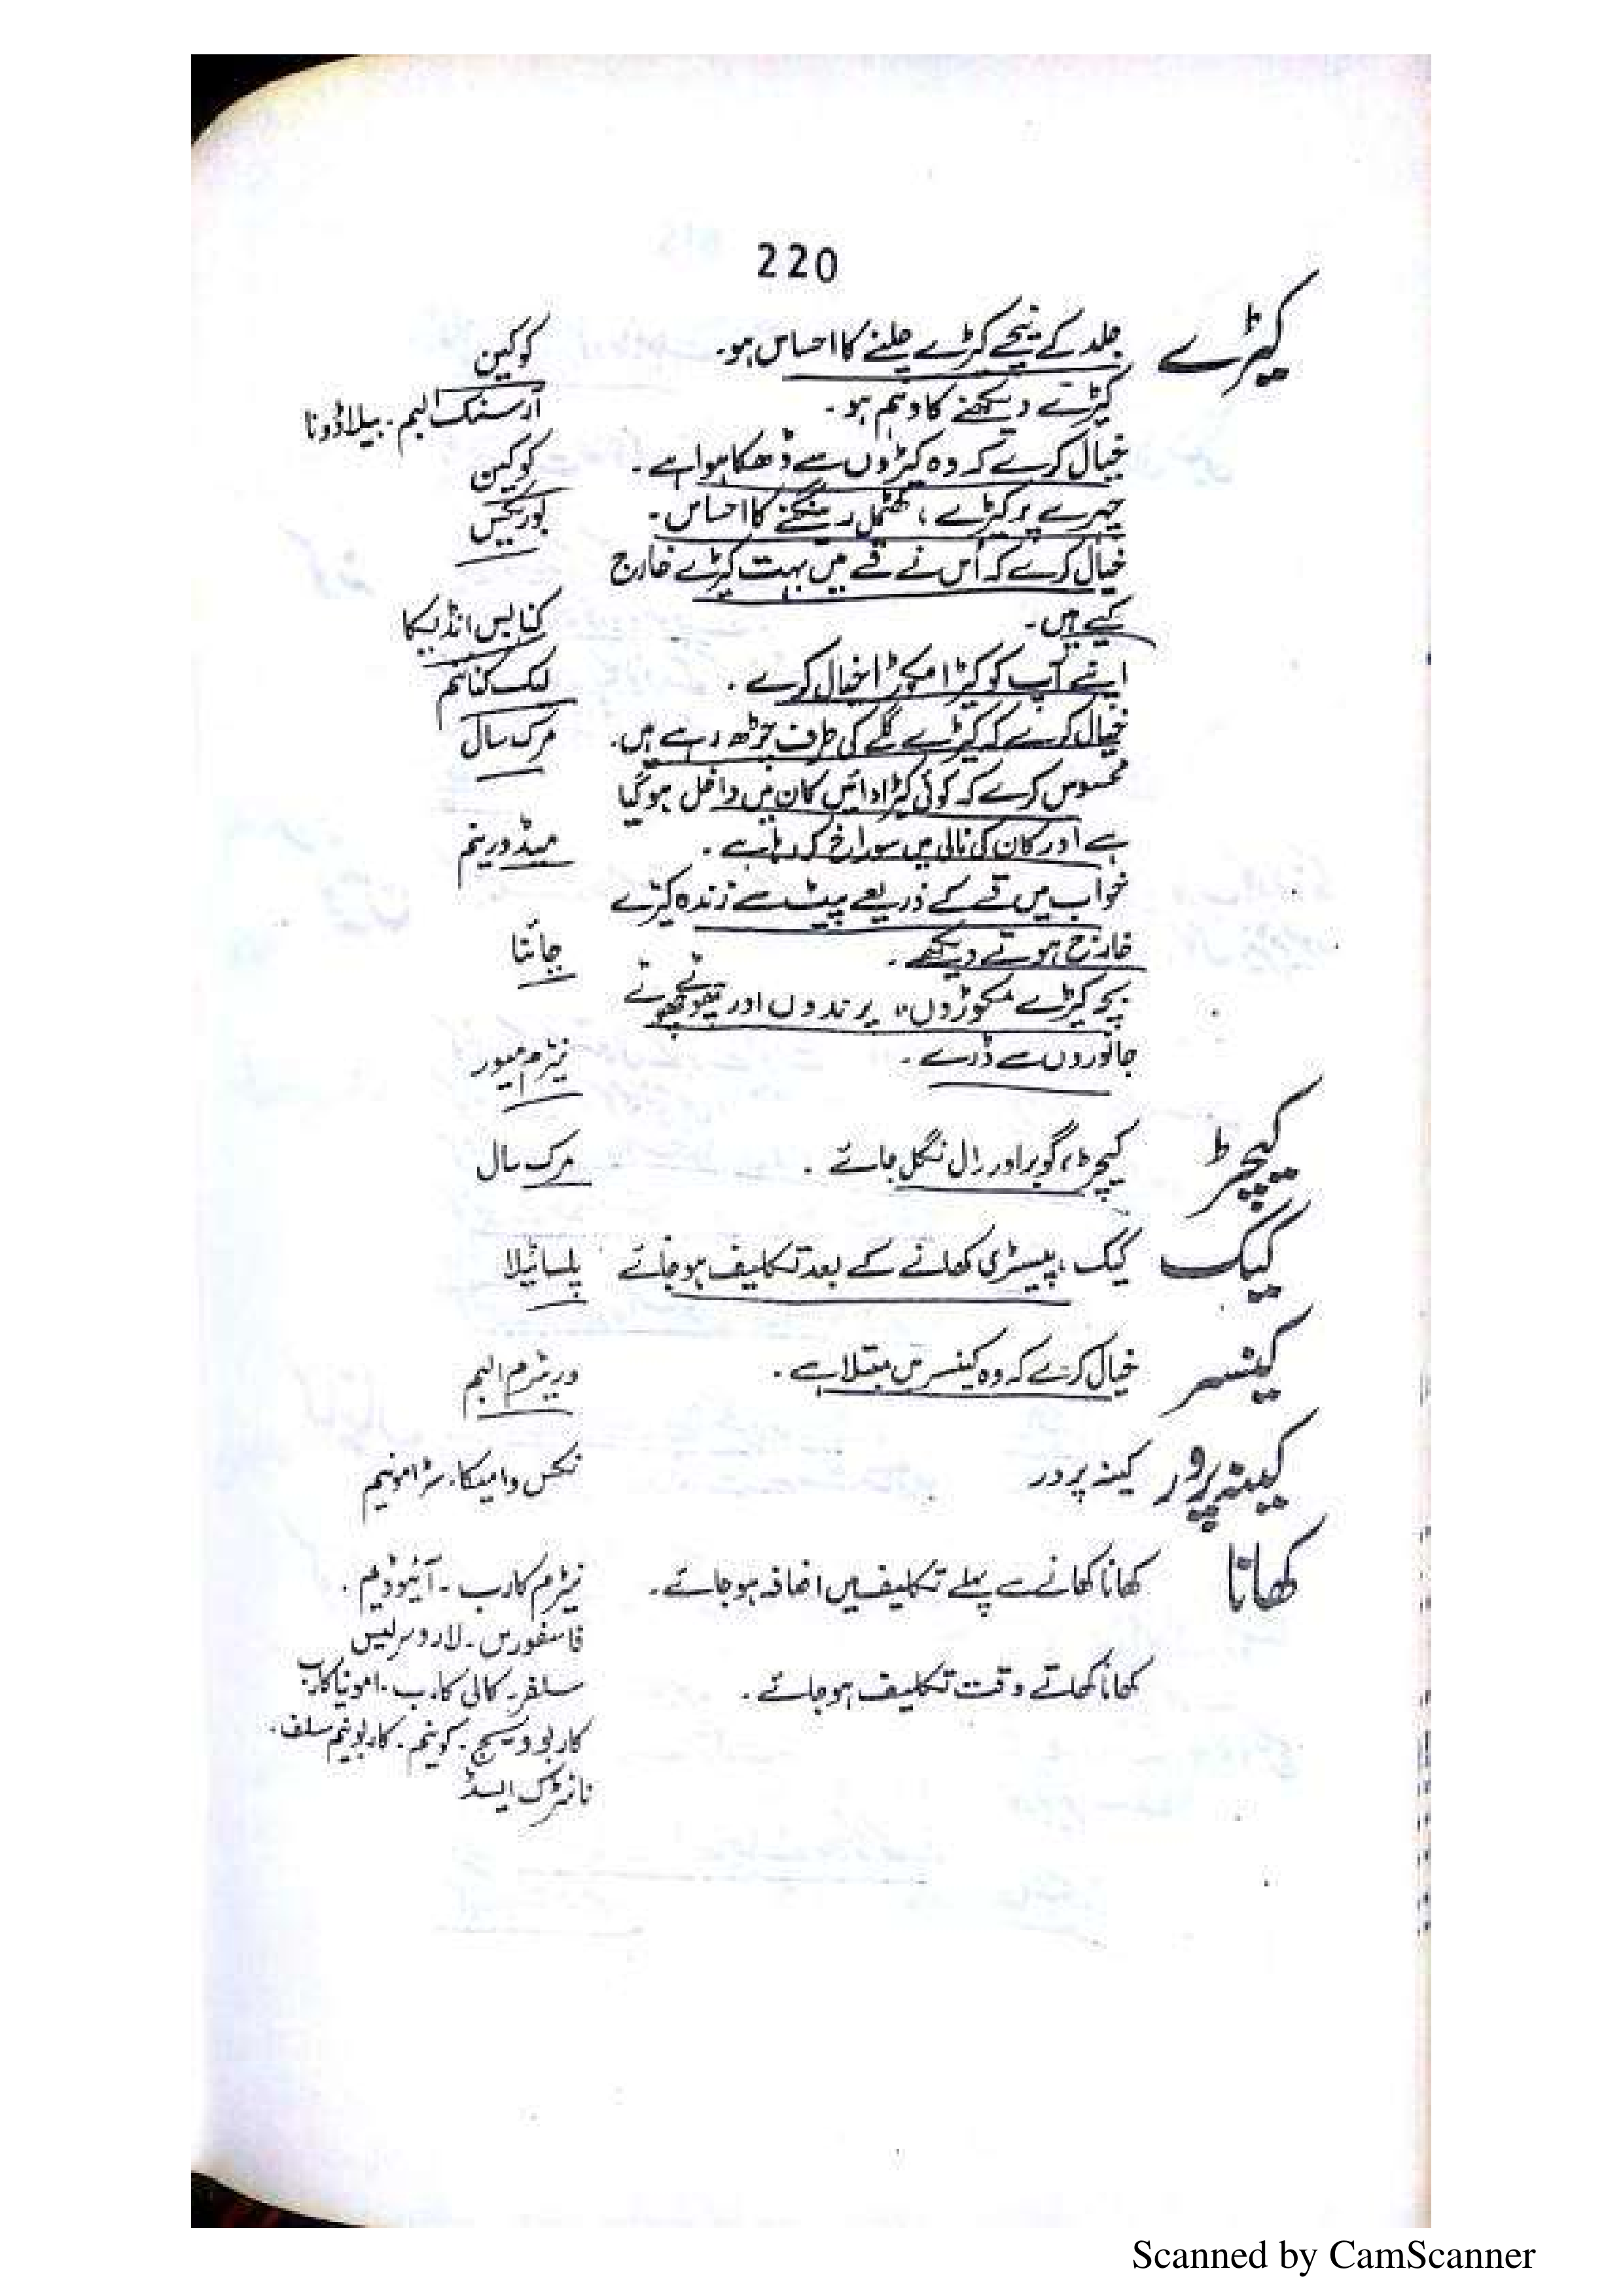 220
کیڑے جلد کے نیچے کیڑے چلنے کا احساس ہو۔ کوکین
کیڑے دیکھنے کا وہم ہو۔ آرسنک البم۔ بیلاڈونا
خیال کرے کہ وہ کیڑوں سے ڈھکا ہوا ہے۔ کوکین
چہرے پر کیڑے، کھٹمل رینگنے کا احساس۔ بوریکس
خیال کرے کہ اُس نے قے میں بہت کیڑے خارج
کیے ہیں۔ کنابس انڈیکا
اپنے آپ کو کیڑا مکوڑا خیال کرے۔ لک کنائنم
خیال کرے کہ کیڑے گلے کی طرف چڑھ رہے ہیں۔ مرک سال
محسوس کرے کہ کوئی کیڑا دائیں کان میں داخل ہو گیا
ہے اور کان کی نالی میں سوراخ کر رہا ہے۔ میڈورینم
خواب میں قے کے ذریعے پیٹ سے زندہ کیڑے
خارج ہوتے دیکھے۔ چائنا
بچہ کیڑے مکوڑوں، پرندوں اور چھوٹے چھوٹے
جانوروں سے ڈرے۔ نیٹرم میور
کیچڑ کیچڑ، گوبر اور رال نگل جائے۔ مرک سال
کیک کیک، پیسٹری کھانے کے بعد تکلیف ہو جائے پلساٹیلا
کینسر خیال کرے کہ وہ کینسر میں مبتلا ہے۔ وریٹرم البم
کینہ پرور کینہ پرور نکس وامیکا۔ سٹرامونیم
کھانا کھانا کھانے سے پہلے تکلیف میں اضافہ ہو جائے۔ نیٹرم کارب۔ آئیوڈیم۔
فاسفورس۔ لاروسریسس
کھانا کھاتے وقت تکلیف ہو جائے۔ سلفر۔ کالی کارب۔ امونیا کارب
کاربو ویج۔ کونیم۔ کاربونیم سلف۔
نائٹرک ایسڈ
Scanned by CamScanner